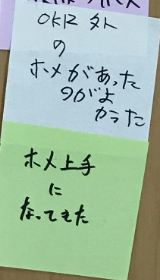 OKR外
の
ホメがあった
のがよ
かった
ホメ上手
に
なってきた